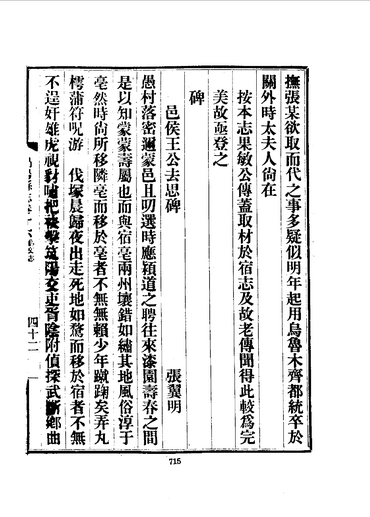 撫張某欲取而代之事多疑似明年起用烏魯木齊都統卒於
關外時太夫人尙在
按本志果敏公傳蓋取材於宿志及故老傳聞得此較爲完
美故亟登之
碑
邑侯王公去思碑 張翼明
愚村落密邇蒙邑且叨選時應潁道之聘往來漆園壽春之間
是以知蒙蒙壽屬也而與宿亳兩州壤錯如繡其地風俗淳于
亳然時尙所移隣亳而移於亳者不無無賴少年蹴踘矣弄丸
樗蒲符呪游 伐塚晨歸夜出走死地如騖而移於宿者不無
不逞奸雄虎視 嘯把 陽交吏胥陰附偵探武斷鄉曲
四十二
715